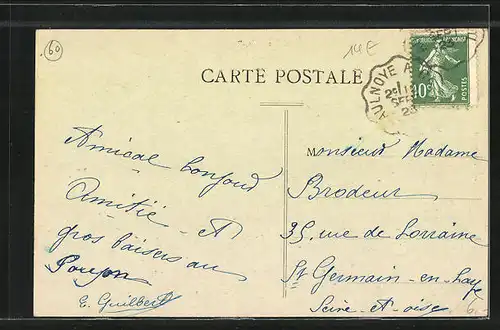 60
14 €
CARTE POSTALE
AULNOYE A
2e
SEPT
10c
POSTES
Amical bonjour
Amitié et
gros baisers au
E. Guilbert
Monsieur Madame
Brodeur
35, rue de Lorraine
St Germain-en-Laye
Seine-et-oise